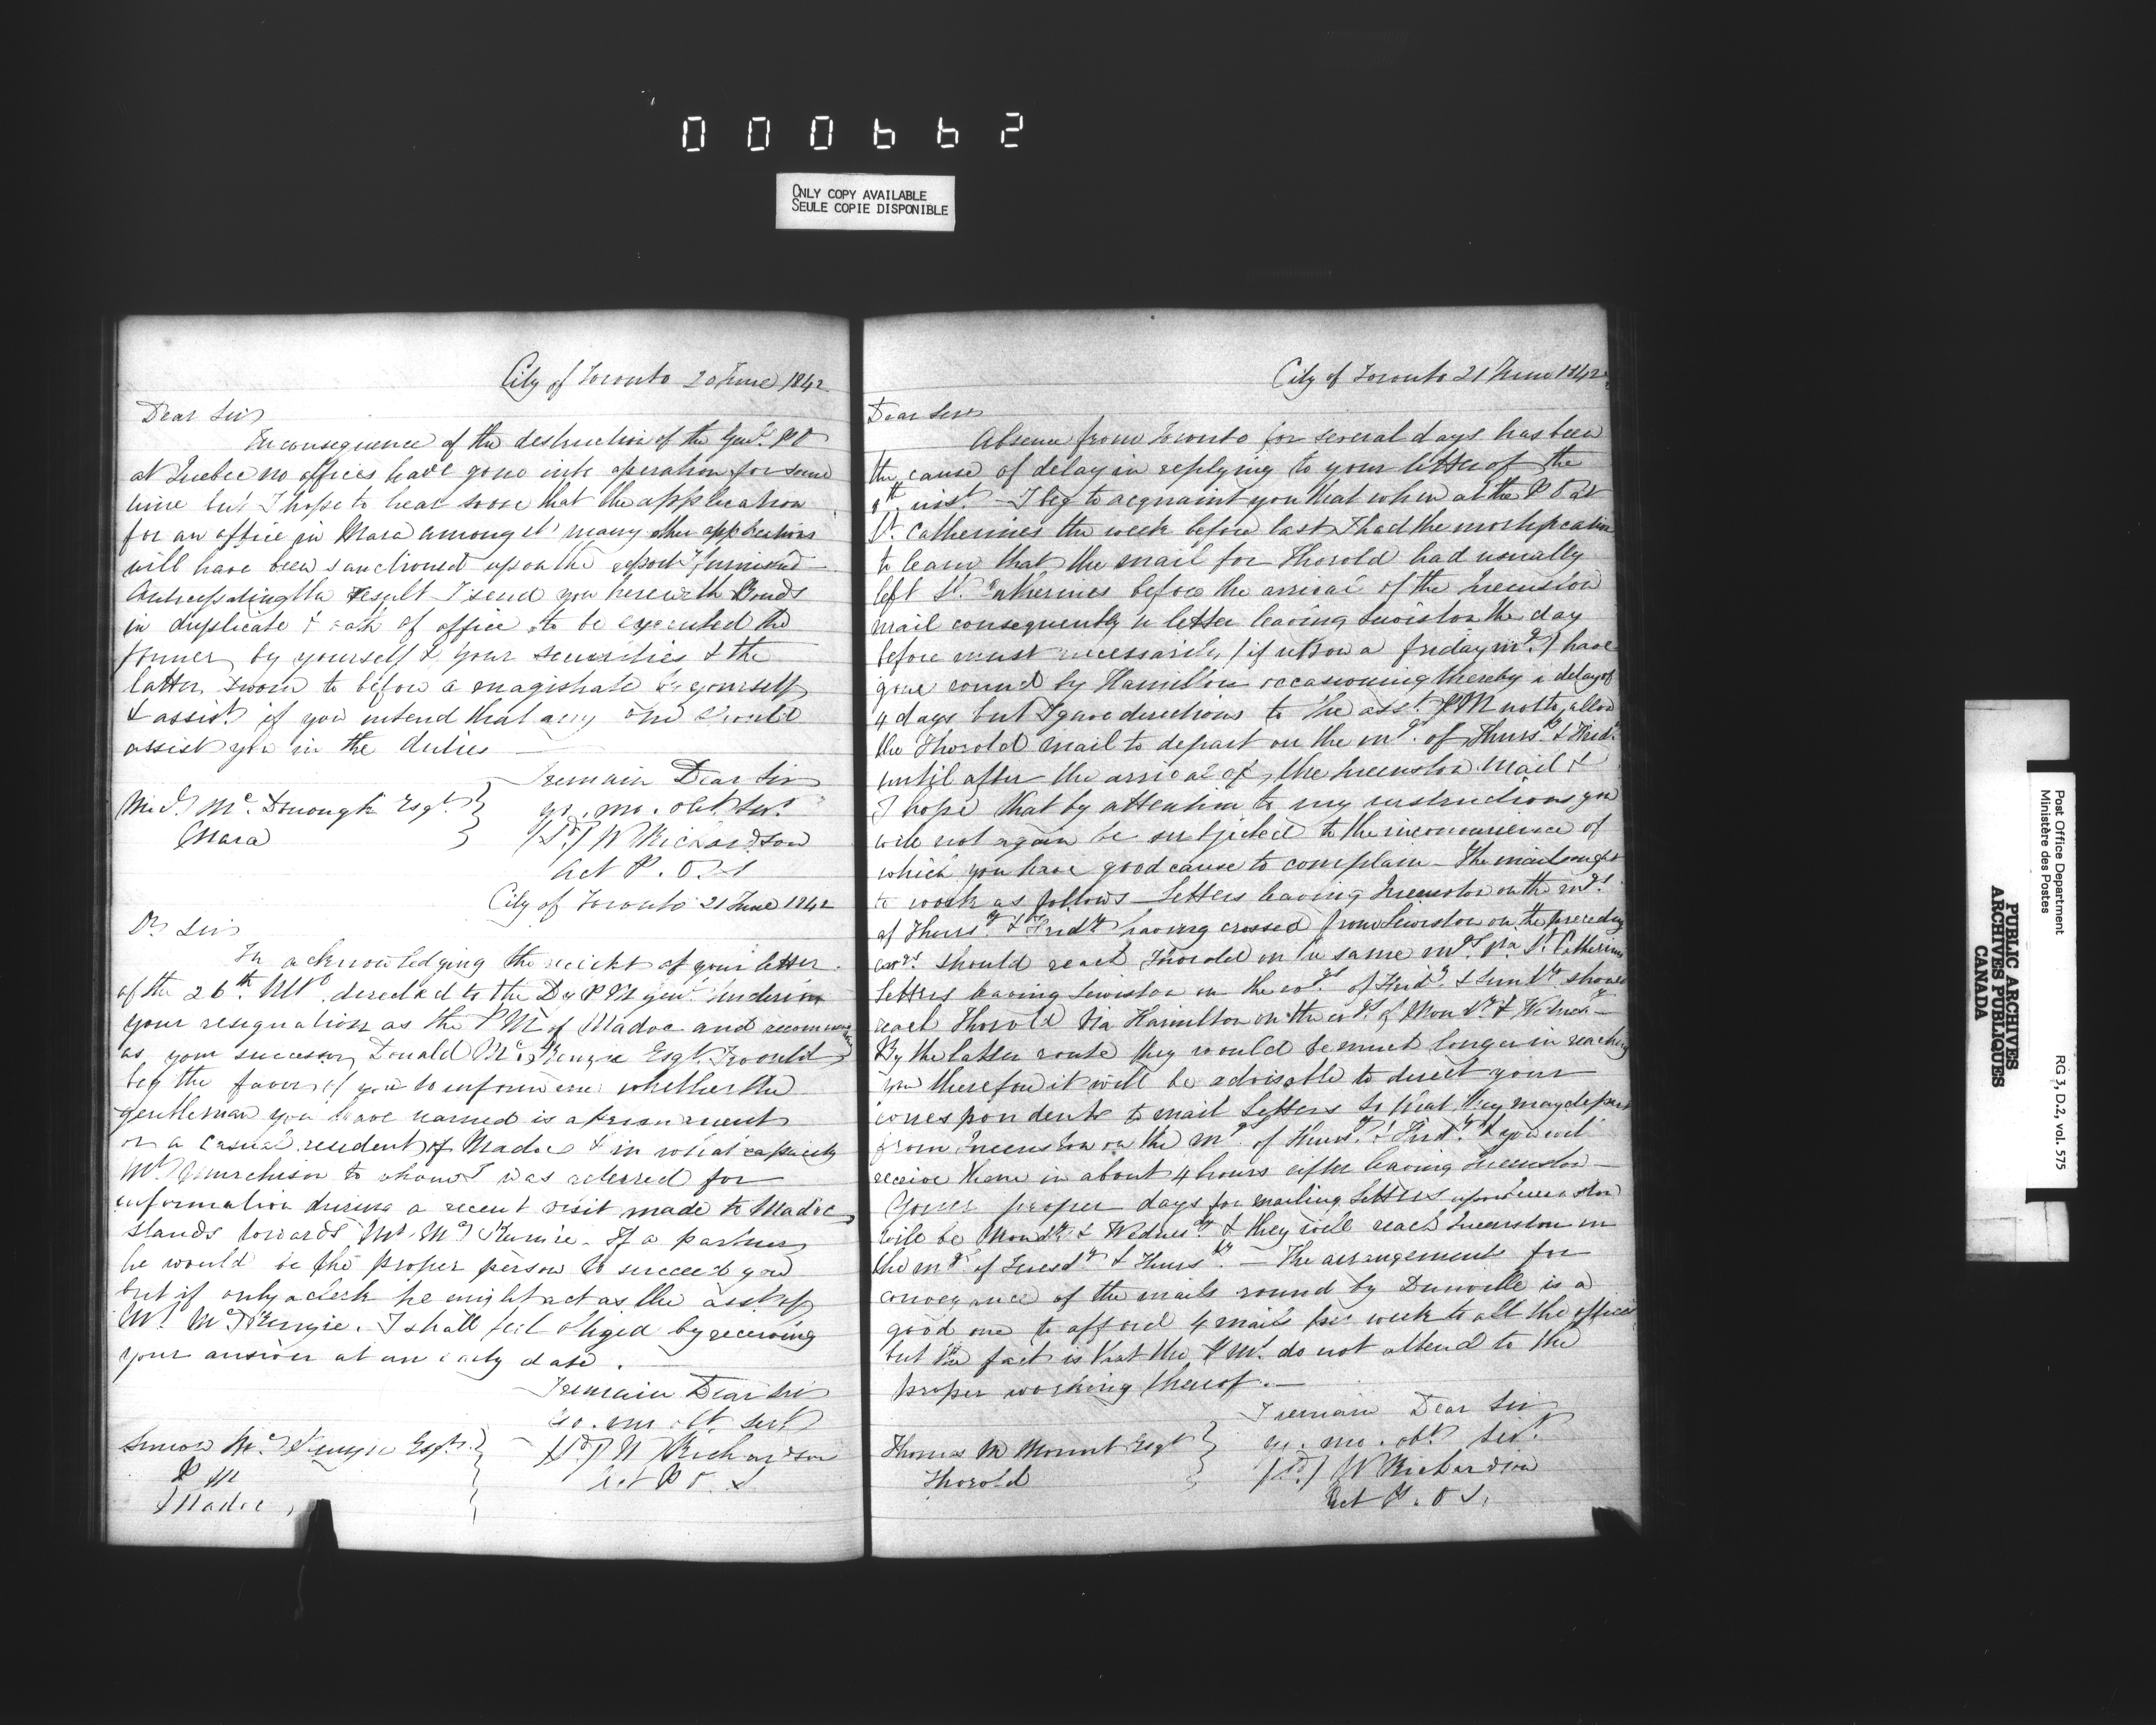 000662
ONLY COPY AVAILABLE
SEULE COPIE DISPONIBLE
City of Toronto 20 June 1842
Dear Sir
In consequence of the destruction of the Genl. P O
at Quebec no offices have gone into operation for some
time but I hope to hear soon that the application
for an office in Mara amongst many other applications
will have been sanctioned upon the report furnished
Anticipating the result I send you herewith Bonds
in duplicate & oath of office to be executed the
former by yourself & your securities & the
latter sworn to before a magistrate by yourself
& assist. if you intend that any one should
assist you in the duties —
I remain Dear Sir
Mc. Donough Esqr. yr. mo. obt. Sert.
Mara (Sd.) W Richardson
Act P. O S
City of Toronto 21 June 1842
Dr. Sir
In acknowledging the receipt of your letter
of the 26th. Ulto. directed to the Dy P M Genl. tendering
your resignation as the P M of Madoc and recommending
as your successor Donald McKenzie Esqr. I would
beg the favor of you to inform me whether the
gentleman you have named is a permanent
or a casual resident of Madoc & in what capacity
Mr. Murchison to whom I was referred for
information during a recent visit made to Madoc
stands towards Mr. McKenzie. If a partner
he would be the proper person to succeed you
but if only a clerk he might act as the asst. of
Mr. McKenzie. I shall feel obliged by receiving
your answer at an early date.
I remain Dear Sir
yo. mo. obt. Sert.
McKenzie Esqr. (Sd.) W Richardson
P M Act P O. S
Madoc
City of Toronto 21 June 1842
Dear Sir
Absence from Toronto for several days has been
the cause of delay in replying to your letter of the
inst. — I beg to acquaint you that when at the P O at
St. Catherines the week before last I had the mortification
to learn that the mail for Thorold had usually
left St. Catherines before the arrival of the Queenston
mail consequently a letter leaving Lewiston the day
before must necessarily (if upon a friday mg.) have
gone round by Hamilton occasioning thereby a delay of
4 days but I gave directions to the asst. P M not to allow
the Thorold mail to depart on the mgs. of Thursdy. & Frid.
until after the arrival of the Queenston Mail &
I hope that by attention to my instructions you
will not again be subjected to the inconvenience of
which you have good cause to complain — The mail ought
to work as follows — Letters leaving Queenston on the mgs.
of Thursdy. & Fridy having crossed from Lewiston on the preceding
evgs. should reach Thorold on the same mgs. via St. Catherines
Letters leaving Lewiston on the evgs. of Fridy. & Sundy. should
reach Thorold via Hamilton on the evgs. of Mondy. & Wednesdy —
By the latter route they would be much longer in reaching
you therefore it will be advisable to direct your
correspondents to mail Letters so that they may depart
from Queenston on the mgs. of Thursdy. & Fridy. & you will
receive them in about 4 hours after leaving Queenston —
Your proper days for mailing Letters upon Queenston
will be Mondy. & Wednesdy. & they will reach Queenston on
the mgs. of Tuesdy & Thursdy. — The arrangement for
conveyance of the mails round by Dunville is a
good one to afford 4 mails per week to all the offices
but the fact is that the P Mrs. do not attend to the
proper working thereof. —
I remain Dear Sir
Thomas M Mount Esqr. yr. mo. obt. Sert.
Thorold (Sd.) W Richardson
Act P. O S.
PUBLIC ARCHIVES
ARCHIVES PUBLIQUES
CANADA
Post Office Department
Ministère des Postes
RG 3, D.2, vol. 575